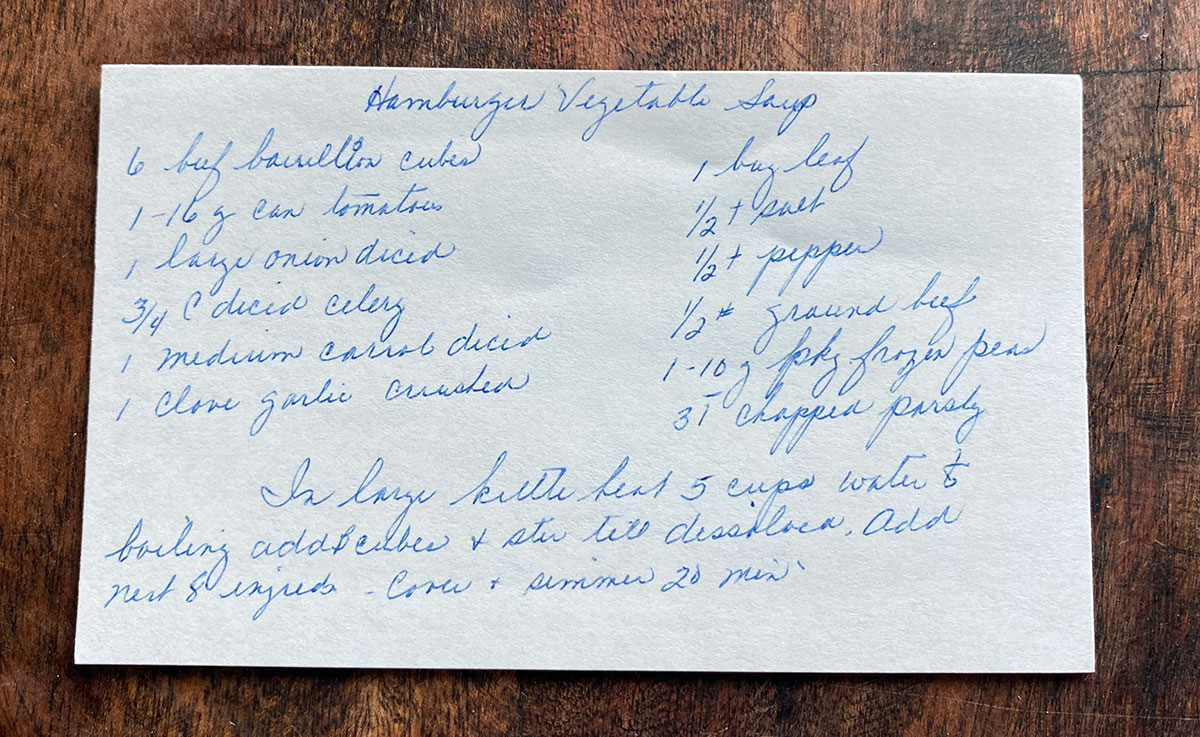 Hamburger Vegetable Soup
6 beef bouillon cubes
1-16 oz can tomatoes
1 large onion diced
3/4 C diced celery
1 medium carrot diced
1 clove garlic crushed
1 bay leaf
1/2 t salt
1/2 t pepper
1/2 # ground beef
1-10 oz pkg frozen peas
3 T chopped parsly
In large kettle heat 5 cups water to
boiling add cubes + stir till dissolved. Add
next 8 ingreds - Cover + simmer 20 min